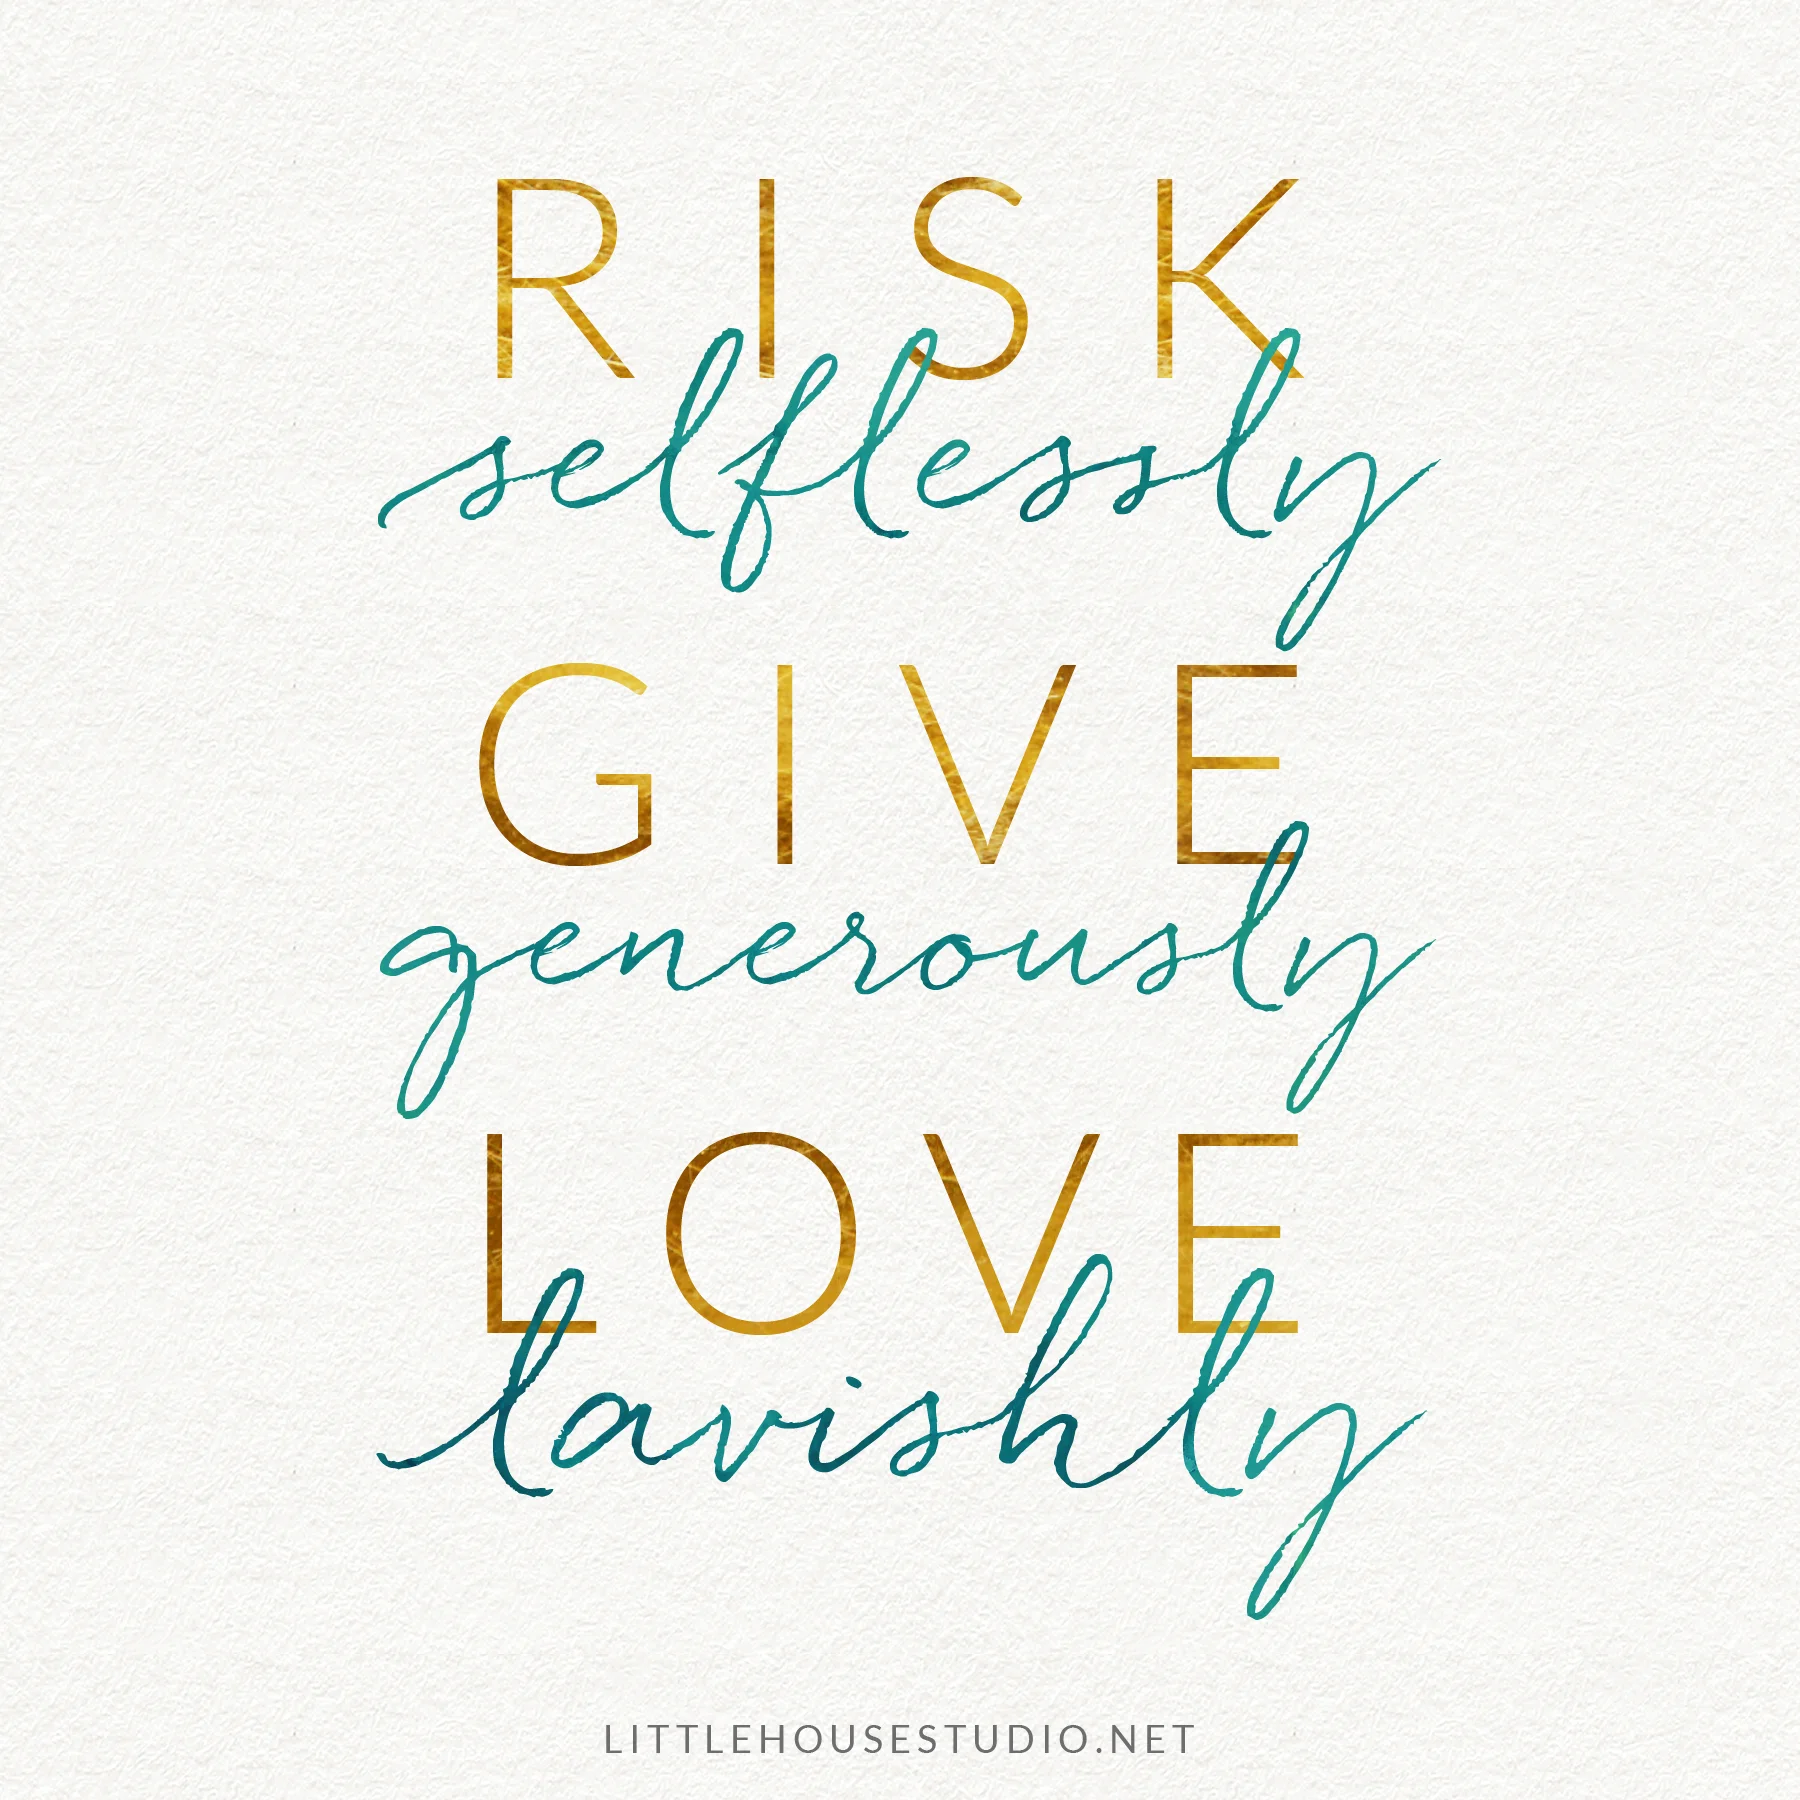 RISK
selflessly
GIVE
generously
LOVE
lavishly
LITTLEHOUSESTUDIO.NET